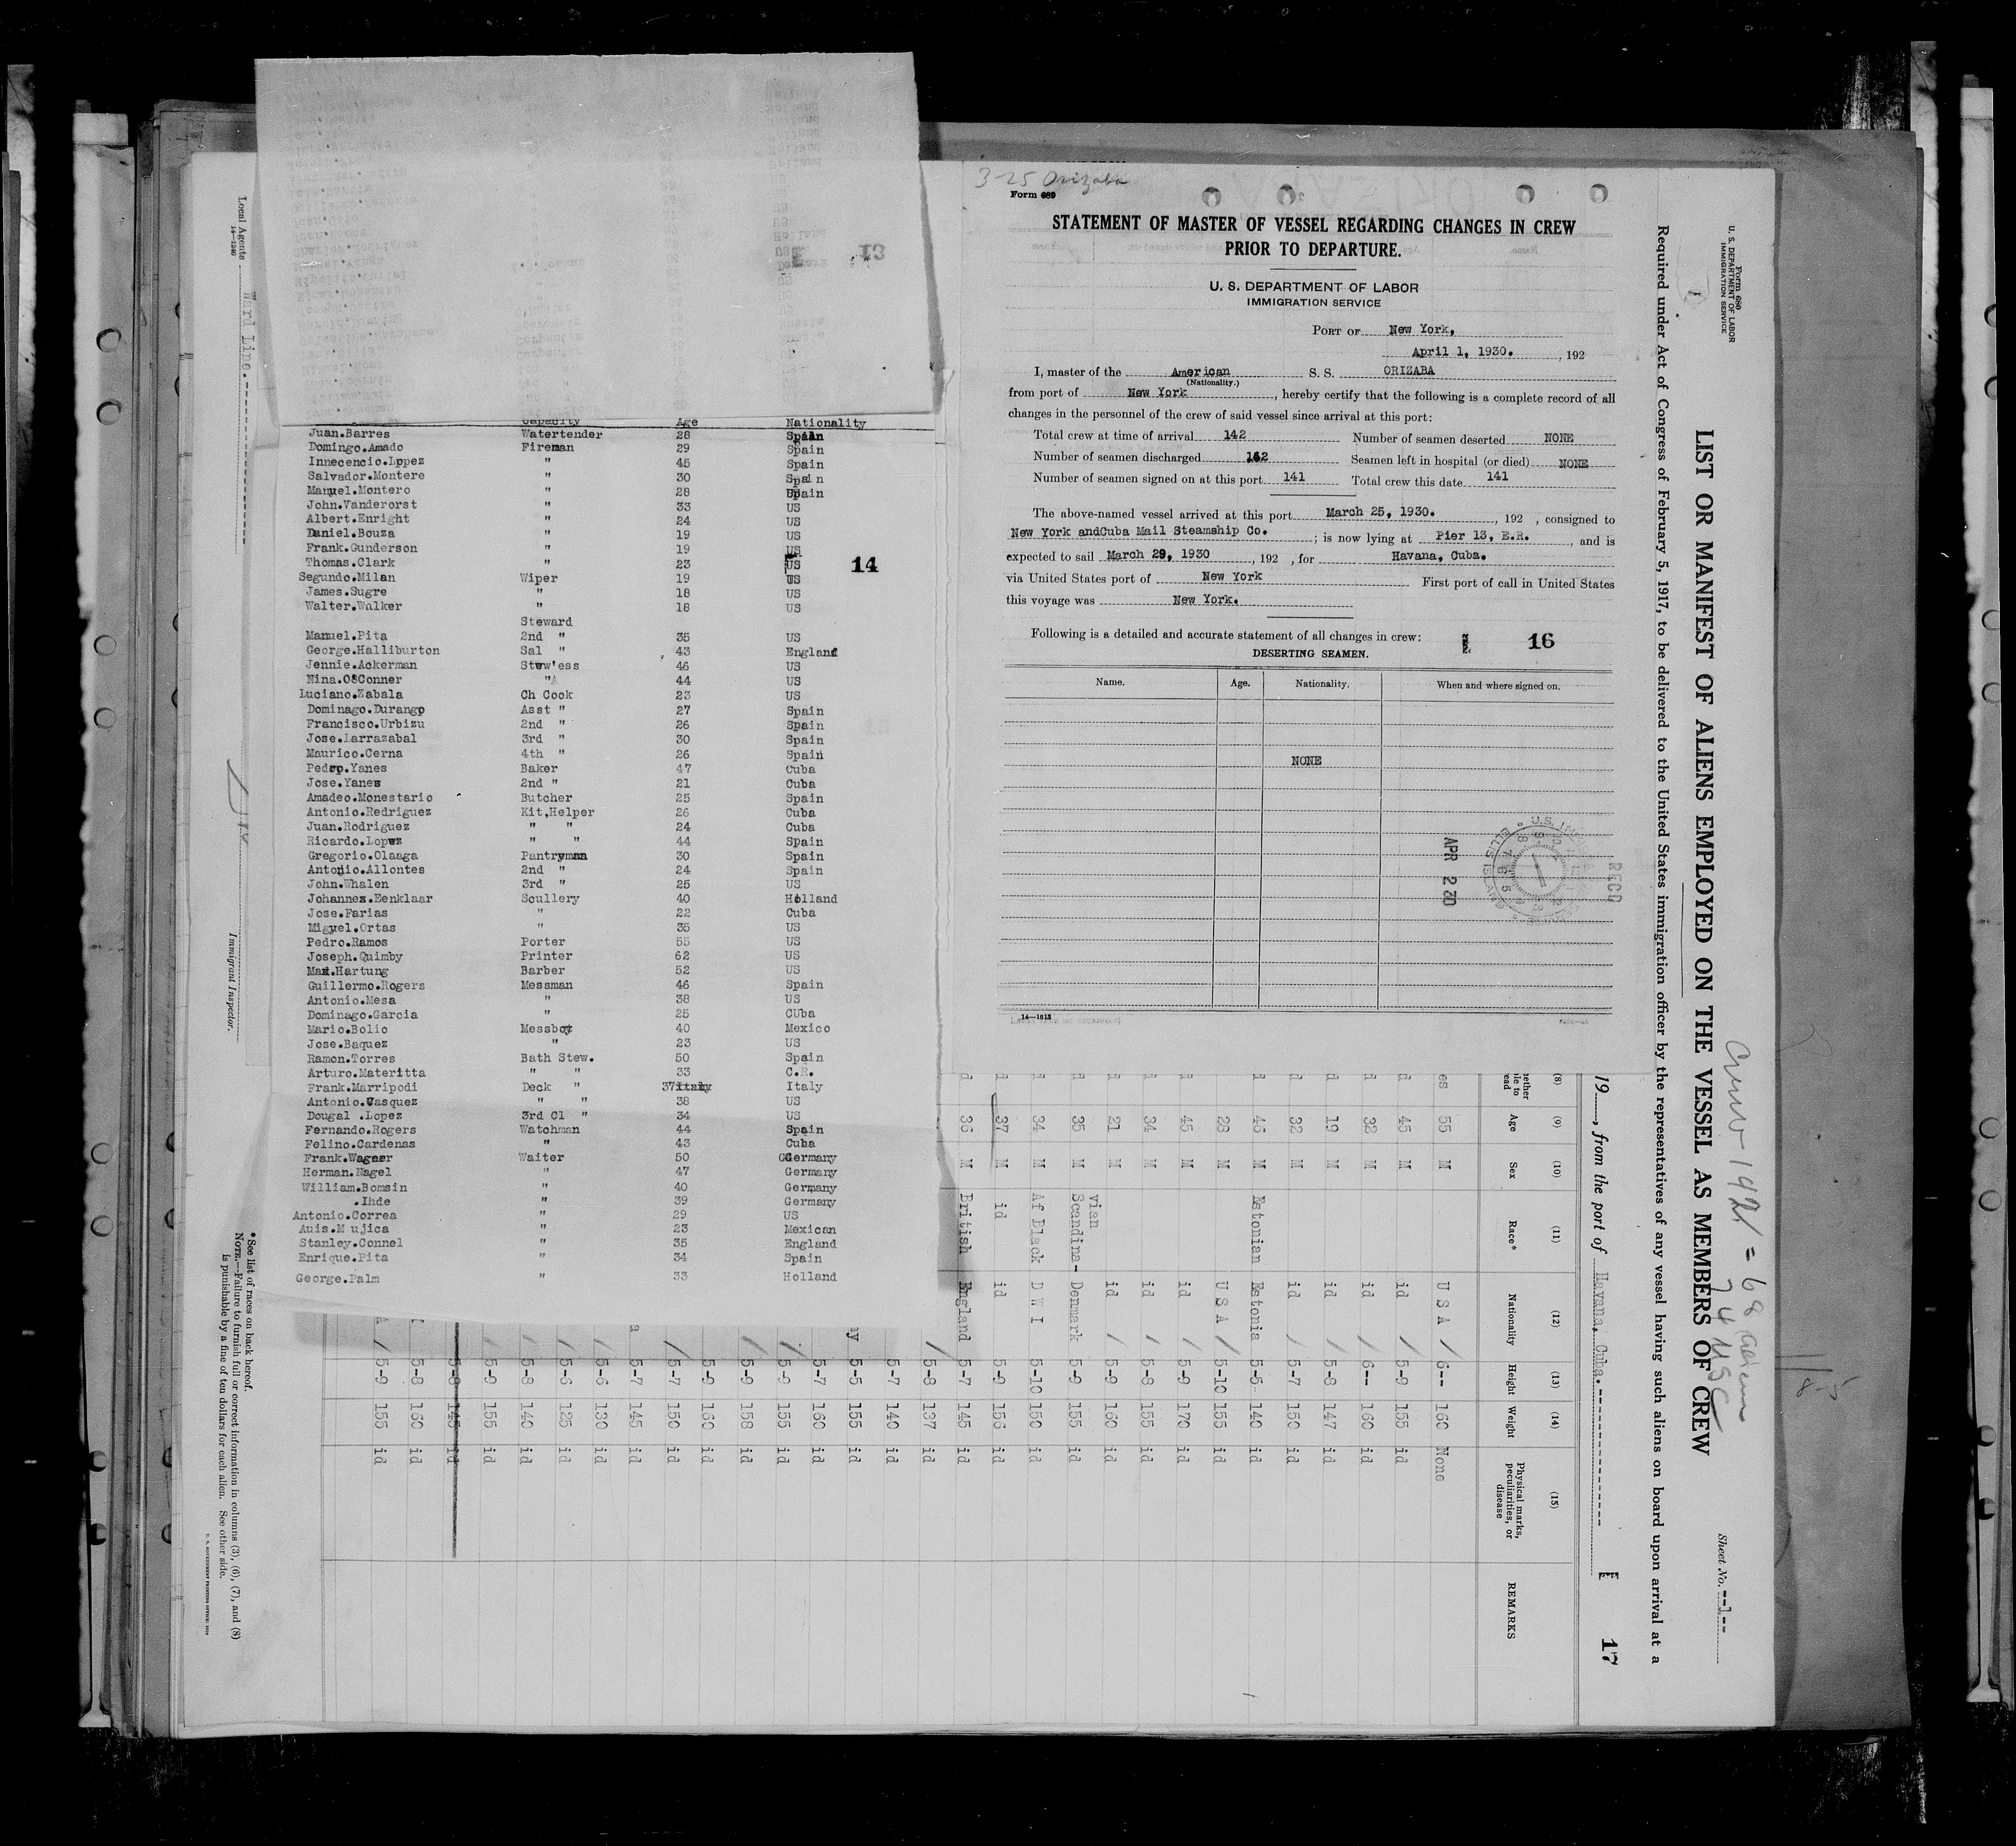 Capacity Age Nationality
Juan.Barres Watertender 28 Spain
Domingo.Amado Fireman 29 Spain
Innecencio.Lppez " 45 Spain
Salvador.Montere " 30 Spain
Manuel.Montero " 28 Spain
John.Vanderorst " 33 US
Albert.Enright " 24 US
Daniel.Bouza " 19 US
Frank.Gunderson " 19 US
Thomas.Clark " 23 US 14
Segundo.Milan Wiper 19 US
James.Sugre " 18 US
Walter.Walker " 18 US
Steward
Manuel.Pita 2nd " 35 US
George.Halliburton Sal " 43 England
Jennie.Ackerman Stew'ess 46 US
Nina.O8Conner "A 44 US
Luciano.Zabala Ch Cook 23 US
Dominago.Durango Asst " 27 Spain
Francisco.Urbizu 2nd " 26 Spain
Jose.Larrazabal 3rd " 30 Spain
Maurico.Cerna 4th " 26 Spain
Pedro.Yanes Baker 47 Cuba
Jose.Yanes 2nd " 21 Cuba
Amadeo.Monestario Butcher 25 Spain
Antonio.Redriguez Kit,Helper 26 Cuba
Juan.Rodriguez " " 24 Cuba
Ricardo.Lopez " " 44 Spain
Gregorio.Olaaga Pantryman 30 Spain
Antonio.Allontes 2nd " 24 Spain
John.Whalen 3rd " 25 US
Johannes.Eenklaar Scullery 40 Holland
Jose.Farias " 22 Cuba
Miguel.Ortas " 35 US
Pedro.Ramos Porter 55 US
Joseph.Quimby Printer 62 US
Max.Hartung Barber 52 US
Guillermo.Rogers Messman 46 Spain
Antonio.Mesa " 38 US
Dominago.Garcia " 25 CUba
Mario.Bolio Messboy 40 Mexico
Jose.Baquez " 23 US
Ramon.Torres Bath Stew. 50 Spain
Arturo.Materitta " " 33 C.R.
Frank.Marripodi Deck " 37 Italy
Antonio.Vasquez " " 38 US
Dougal .Lopez 3rd Cl " 34 US
Fernando.Rogers Watchman 44 Spain
Felino.Cardenas " 43 Cuba
Frank.Wagner Waiter 50 Germany
Herman.Nagel " 47 Germany
William.Bomsin " 40 Germany
.Ihde " 39 Germany
Antonio.Correa " 29 US
Auis.M ujica " 23 Mexican
Stanley.Connel " 35 England
Enrique.Pita " 34 Spain
George.Palm " 33 Holland
13
3-25 Orizaba
Form 689
STATEMENT OF MASTER OF VESSEL REGARDING CHANGES IN CREW
PRIOR TO DEPARTURE.
U. S. DEPARTMENT OF LABOR
IMMIGRATION SERVICE
PORT OF New York,
April 1, 1930. , 192
I, master of the American S. S. ORIZABA
(Nationality.)
from port of New York , hereby certify that the following is a complete record of all
changes in the personnel of the crew of said vessel since arrival at this port:
Total crew at time of arrival 142 Number of seamen deserted NONE
Number of seamen discharged 142 Seamen left in hospital (or died) NONE
Number of seamen signed on at this port 141 Total crew this date 141
The above-named vessel arrived at this port March 25, 1930. , 192 , consigned to
New York andCuba Mail Steamship Co. ; is now lying at Pier 13, E.R. , and is
expected to sail March 29, 1930 , 192 , for Havana, Cuba.
via United States port of New York First port of call in United States
this voyage was New York.
Following is a detailed and accurate statement of all changes in crew: 16
DESERTING SEAMEN.
Name. Age. Nationality. When and where signed on.
NONE
APR 2 30
RECD
14—1513
Form 680
U. S. DEPARTMENT OF LABOR
IMMIGRATION SERVICE
Sheet No. --1--
LIST OR MANIFEST OF ALIENS EMPLOYED ON THE VESSEL AS MEMBERS OF CREW
Required under Act of Congress of February 5, 1917, to be delivered to the United States immigration officer by the representatives of any vessel having such aliens on board upon arrival at a
Crew 142 = 68 aliens
74 USC
19 , from the port of Havana, Cuba. E 17
(8) (9) (10) (11) (12) (13) (14) (15)
Age Sex Race* Nationality Height Weight Physical marks, peculiarities, or disease REMARKS
es 55 M U S A 6-- 160 None
d 45 M id 5-9 155 id
d 32 M id 6-- 160 id
d 19 M id 5-8 147 id
d 32 M id 5-7 150 id
d 46 M Estonian Estonia 5-5 140 id
d 28 M U S A 5-10 155 id
d 45 M id 5-9 170 id
d 34 M id 5-8 155 id
d 21 M id 5-9 160 id
d 35 M Scandina-vian Denmark 5-9 155 id
d 34 M Af Black D W I 5-10 150 id
d 37 M id id 5-9 156 id
d 36 M British England 5-7 145 id
5-8 137 id
5-7 140 id
ny 5-5 155 id
5-7 160 id
5-9 155 id
5-9 158 id
5-9 160 id
5-7 150 id
a 5-7 145 id
5-6 130 id
5-6 125 id
5-8 140 id
5-9 155 id
5-8 145 id
5-8 160 id
A 5-9 155 id
Local Agents Ward Line.
14—1240
Immigrant Inspector.
* See list of races on back hereof.
NOTE.—Failure to furnish full or correct information in columns (3), (6), (7), and (8)
is punishable by a fine of ten dollars for each alien. See other side.